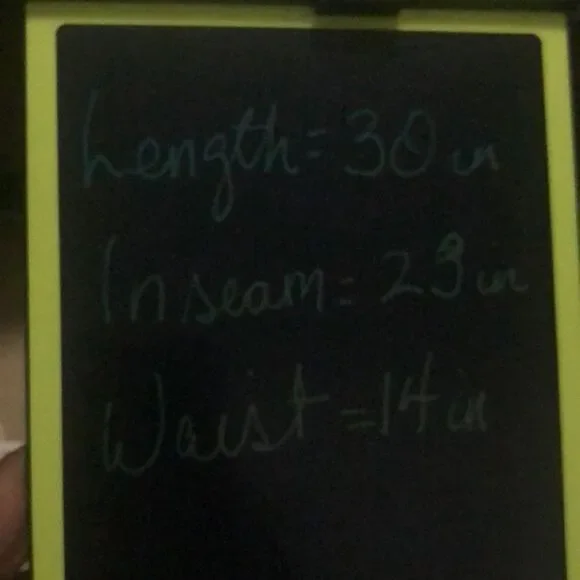 Length = 30 in
Inseam = 23 in
Waist = 14 in